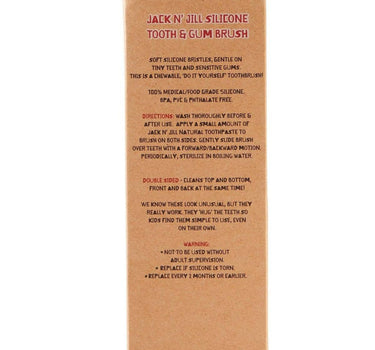 JACK N' JILL SILICONE
TOOTH & GUM BRUSH
SOFT SILICONE BRISTLES, GENTLE ON
TINY TEETH AND SENSITIVE GUMS.
THIS IS A CHEWABLE, 'DO IT YOURSELF' TOOTHBRUSH!
100% MEDICAL/FOOD GRADE SILICONE.
BPA, PVC & PHTHALATE FREE.
DIRECTIONS: WASH THOROUGHLY BEFORE &
AFTER USE. APPLY A SMALL AMOUNT OF
JACK N' JILL NATURAL TOOTHPASTE TO
BRUSH ON BOTH SIDES. GENTLY SLIDE BRUSH
OVER TEETH WITH A FORWARD/BACKWARD MOTION.
PERIODICALLY, STERILIZE IN BOILING WATER.
DOUBLE SIDED - CLEANS TOP AND BOTTOM,
FRONT AND BACK AT THE SAME TIME!
WE KNOW THESE LOOK UNUSUAL, BUT THEY
REALLY WORK. THEY 'HUG' THE TEETH SO
KIDS FIND THEM SIMPLE TO USE, EVEN
ON THEIR OWN.
WARNING:
• NOT TO BE USED WITHOUT
ADULT SUPERVISION.
• REPLACE IF SILICONE IS TORN.
• REPLACE EVERY 2 MONTHS OR EARLIER.